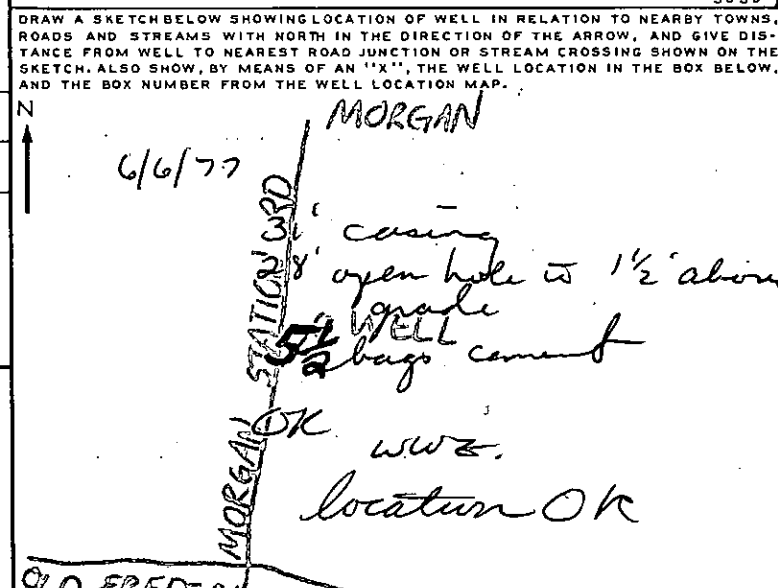 DRAW A SKETCH BELOW SHOWING LOCATION OF WELL IN RELATION TO NEARBY TOWNS,
ROADS AND STREAMS WITH NORTH IN THE DIRECTION OF THE ARROW, AND GIVE DIS-
TANCE FROM WELL TO NEAREST ROAD JUNCTION OR STREAM CROSSING SHOWN ON THE
SKETCH. ALSO SHOW, BY MEANS OF AN "X", THE WELL LOCATION IN THE BOX BELOW,
AND THE BOX NUMBER FROM THE WELL LOCATION MAP.
N
MORGAN
6/6/77
MORGAN STATION RD
31' casing
28' open hole to 1 1/2' above
grade
WELL
5 1/2 bags cement
OK
WWZ.
location OK
OLD